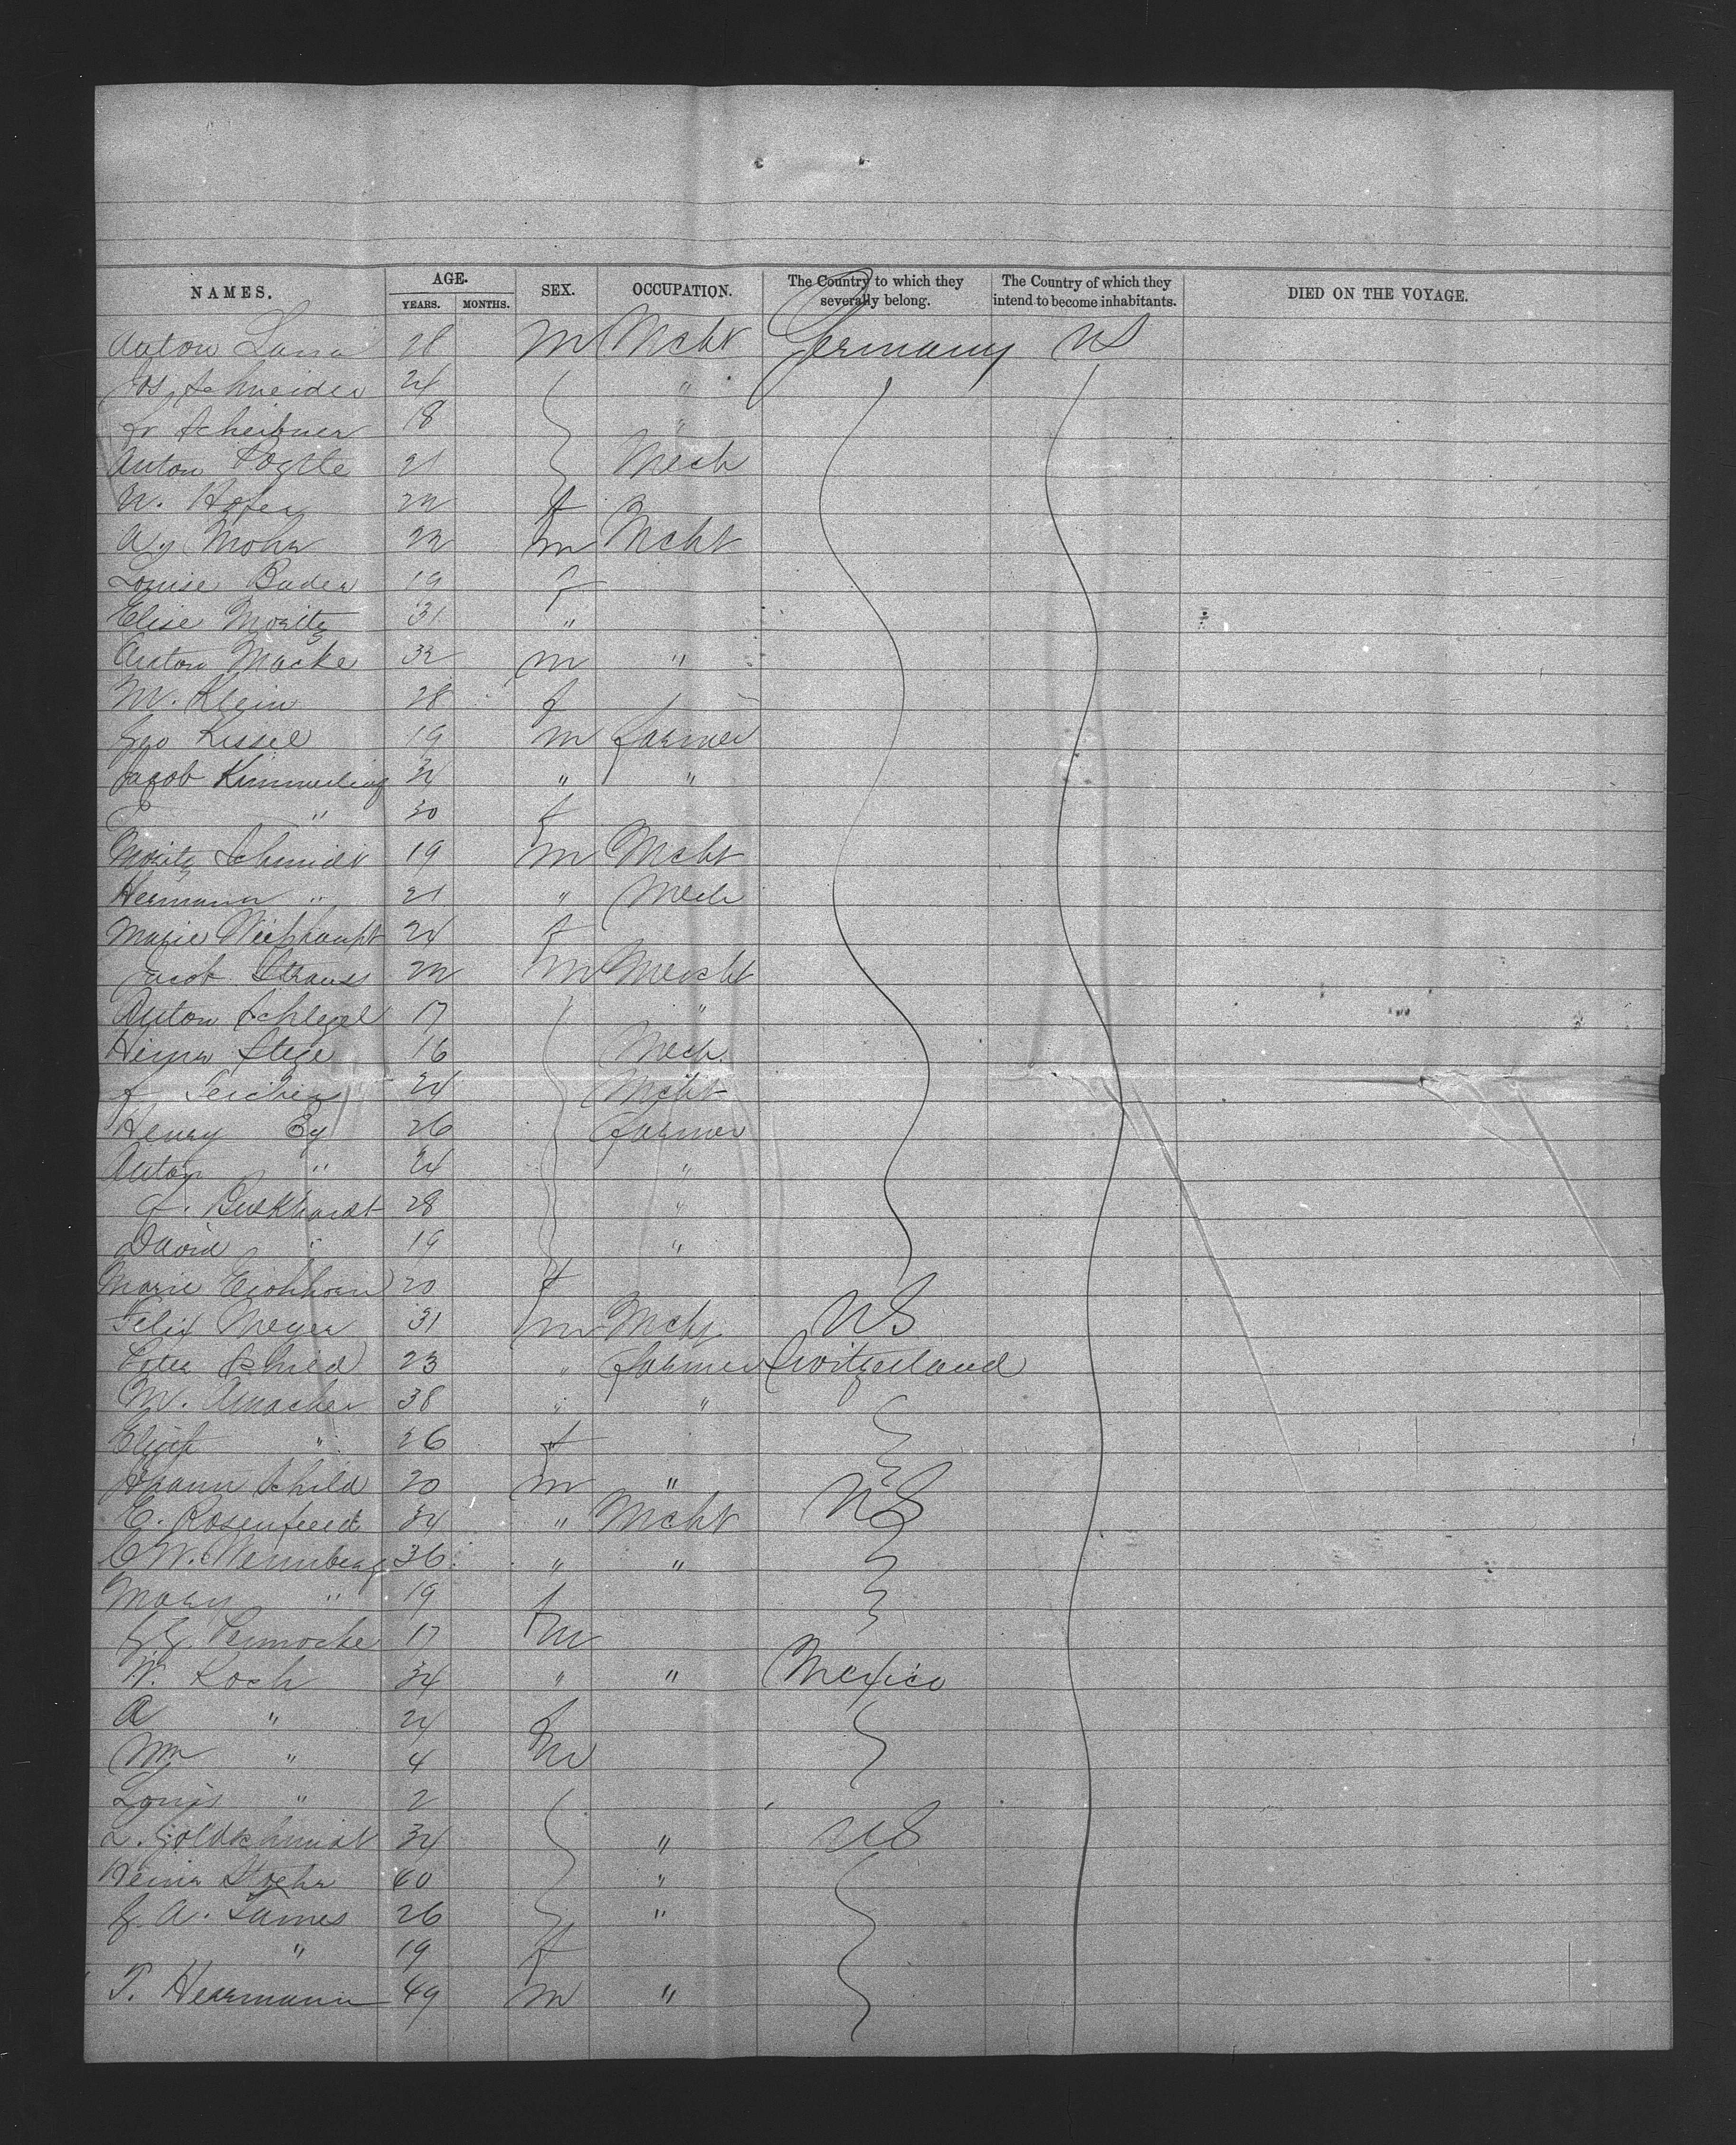 NAMES. AGE. YEARS. MONTHS. SEX. OCCUPATION. The Country to which they severally belong. The Country of which they intend to become inhabitants. DIED ON THE VOYAGE.
Anton 28 m Mcht Germany US
Jos Schneider 24 "
Fr Scheibner 18 "
Anton 21 Mech
W. Hofer 22 f
Ag Mohr 22 m Mcht
Louise Bader 19 f
Elise Moritz 31 "
Anton Macke 32 m "
M. Klein 28 f
Geo Kissel 19 m farmer
Jacob Kimmerling 34 " "
" 30 f
Moritz Schmidt 19 m Mcht
Hermann " 21 " Mech
Marie 24 f
Jacob Strauss 22 m Mercht
Anton Schlegel 17 "
Heinr Stege 16 Mech
F 24 Mcht
Henry Ey 26 farmer
Anton " 24 "
Burkhardt 28 "
David " 19 "
Marie Eichhorn 20 f
Felix Meyer 31 m Mcht US
Peter Schild 23 " farmer Switzerland
M. Amacher 38 " "
" 26 f
Johann Schild 20 m "
E. Rosenfeld 34 " Mcht US
C W. 36 " "
Mary " 19 f
17 m
W. Koch 34 " " Mexico
A " 24 f
Wm " 4 m
Louis " 2
L. Goldschmidt 34 " US
Heinr Stoehr 60 "
G. A. 26 "
" 19 f
T. Hearmann 49 m "